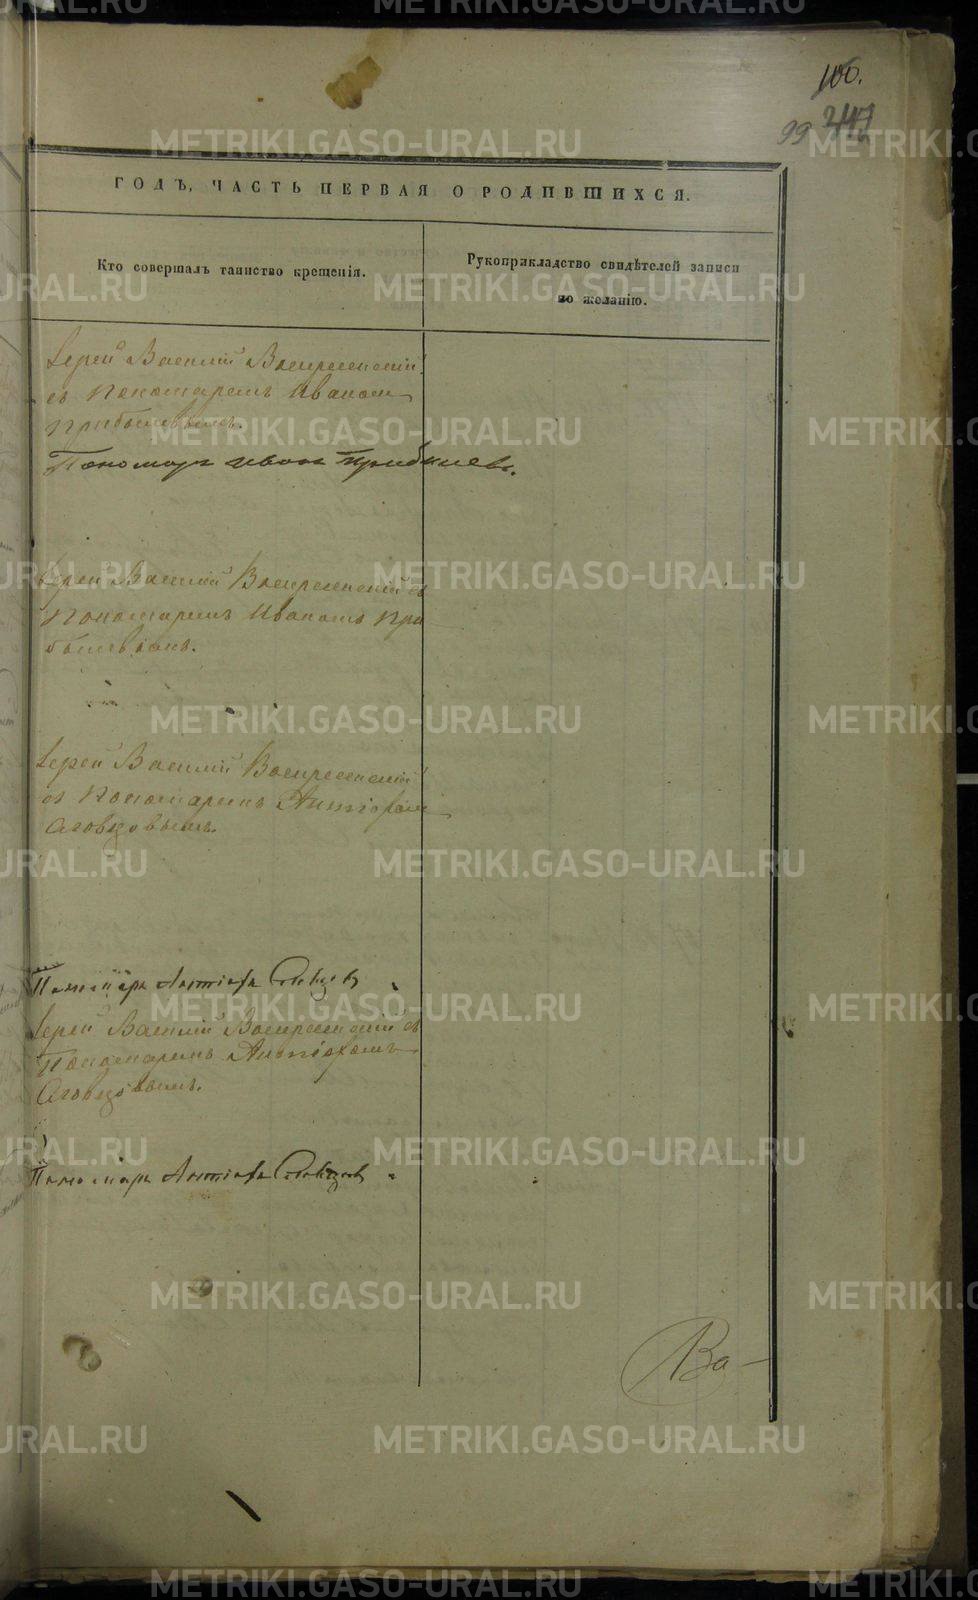 100.
99 247
ГОДЪ, ЧАСТЬ ПЕРВАЯ О РОДИВШИХСЯ.
Кто совершалъ таинство крещенія.
Рукоприкладство свидѣтелей записи
по желанію.
Іерей Василій Воскресенскій
съ Пономаремъ Иваномъ
Прибылевымъ.
Пономарь Иванъ Прибылевъ.
Іерей Василій Воскресенскій съ
Пономаремъ Иваномъ При
былевымъ.
Іерей Василій Воскресенскій
съ Пономаремъ Антіохомъ
Словцовымъ.
Пономарь Антіохъ Словцовъ
Іерей Василій Воскресенскій съ
Пономаремъ Антіохомъ
Словцовымъ.
Пономарь Антіохъ Словцовъ
Ва-
METRIKI.GASO-URAL.RU